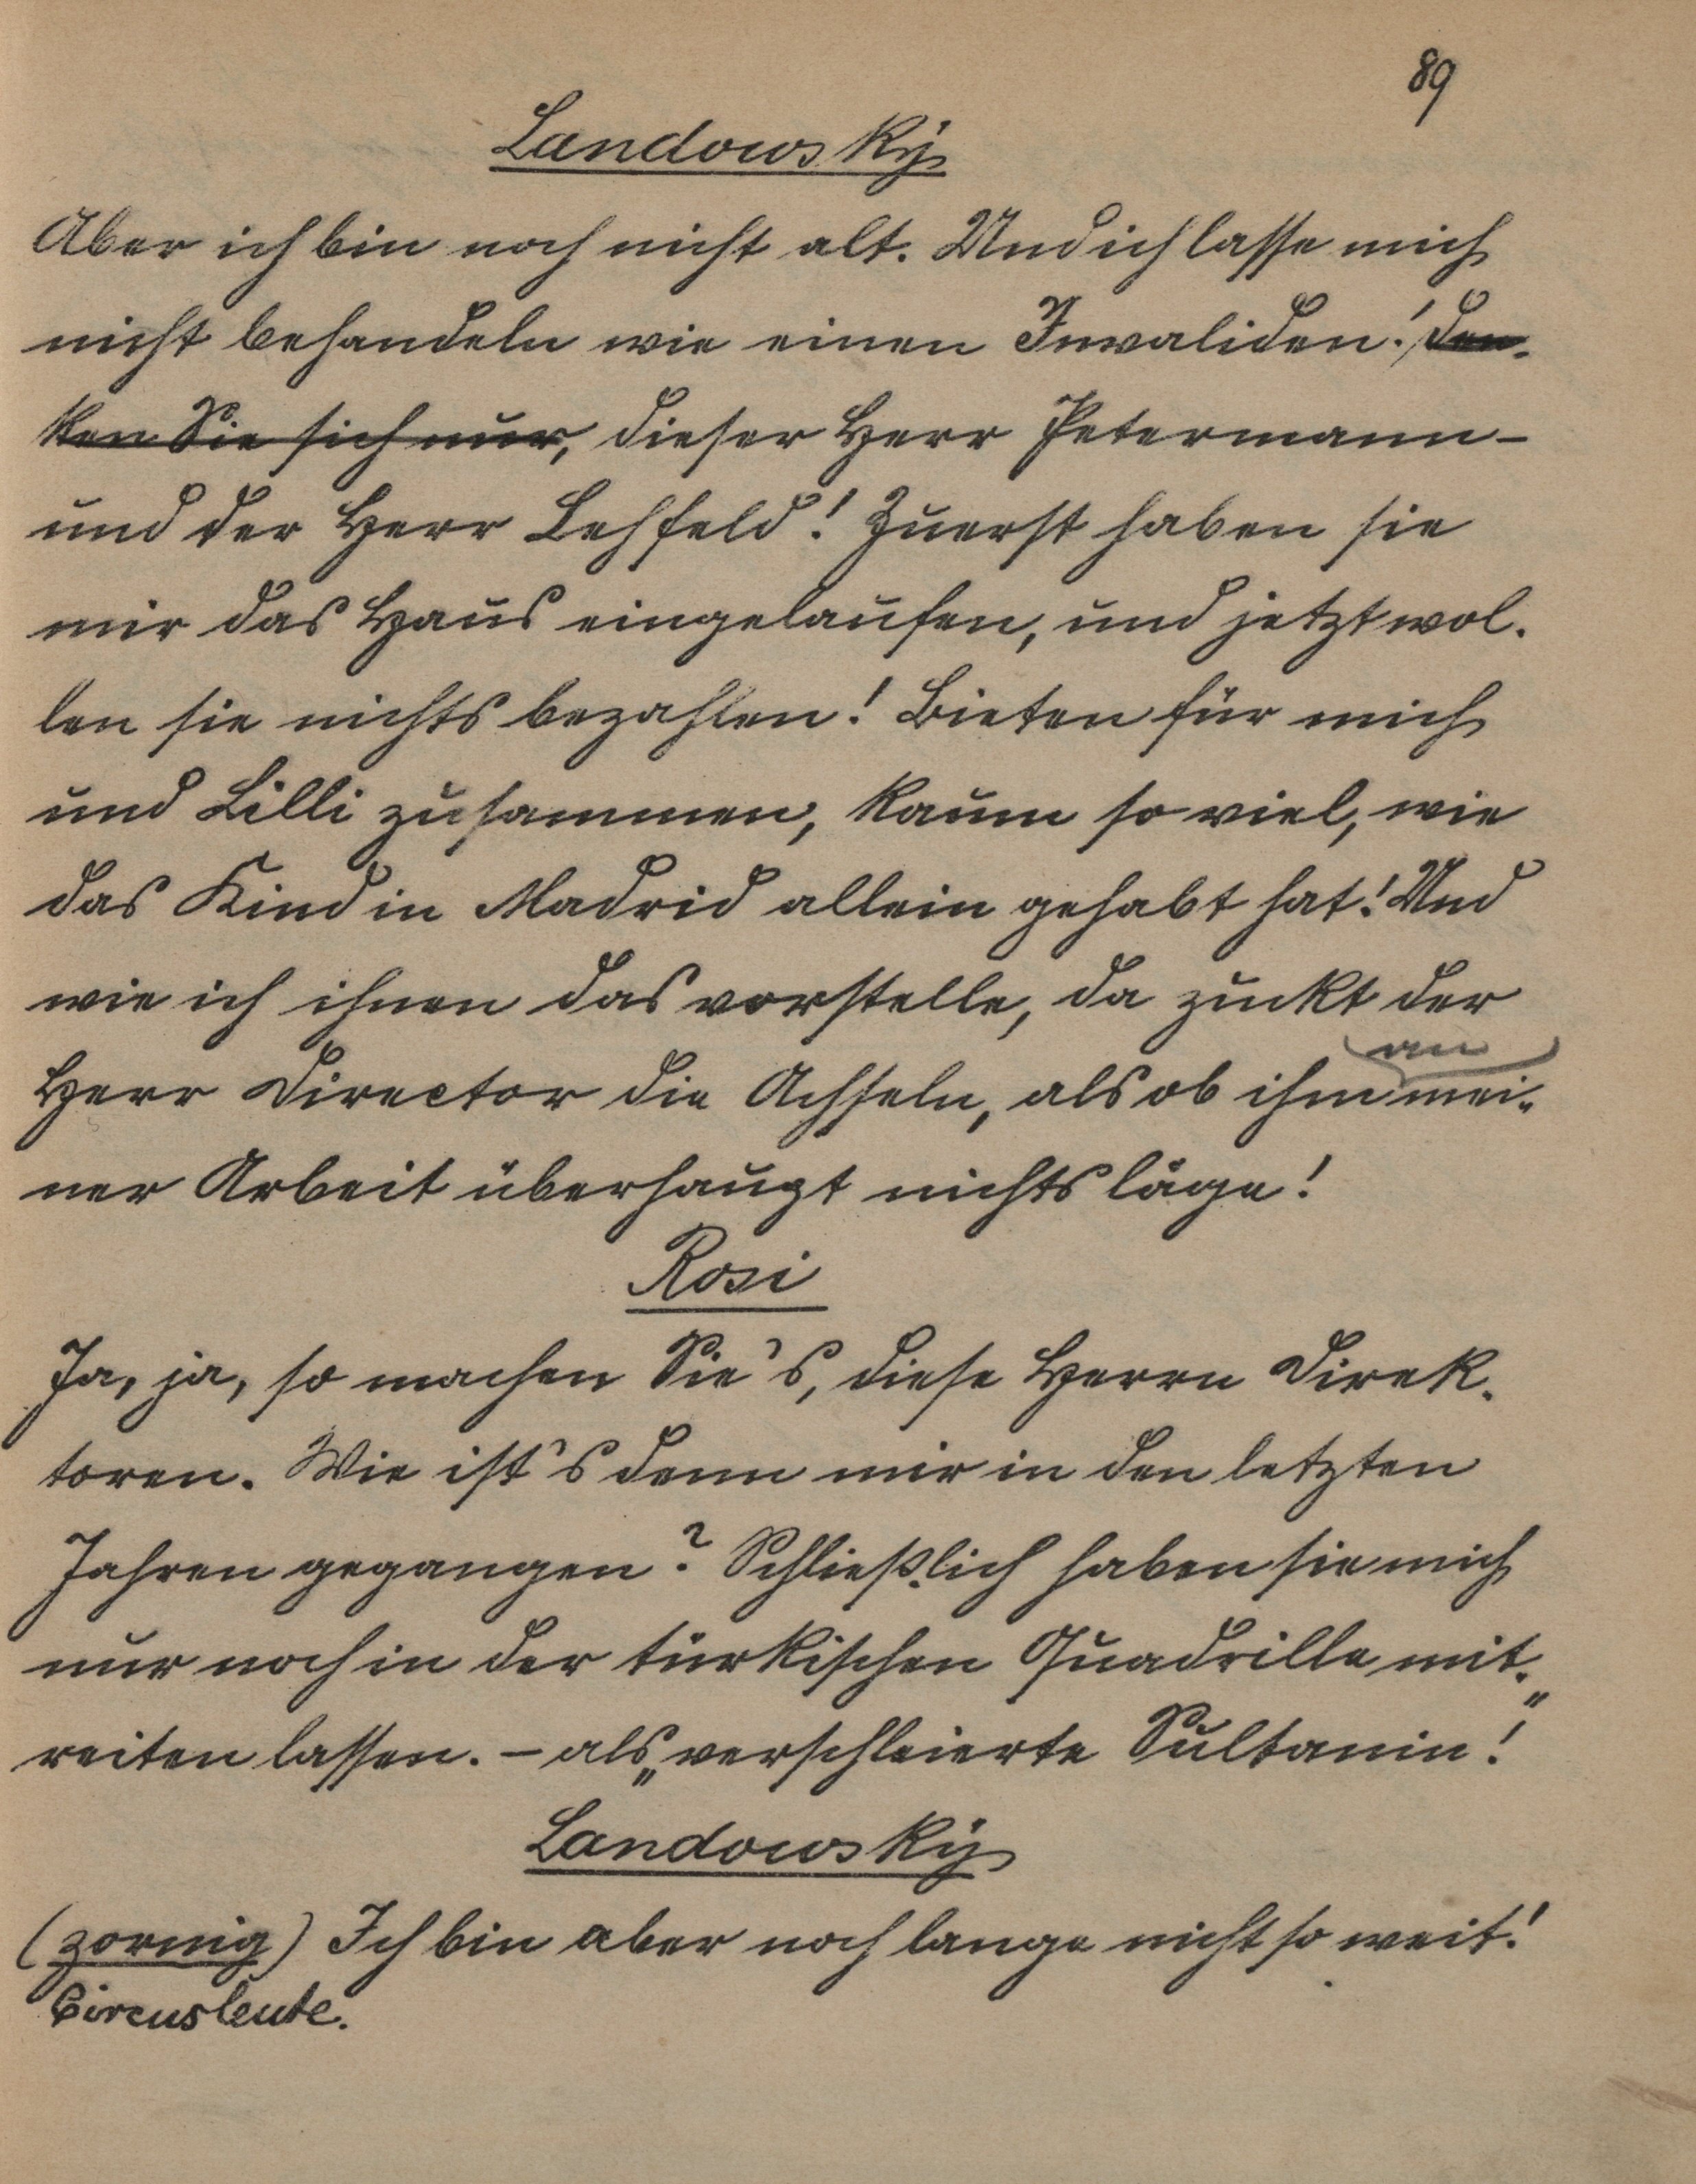 89
Landowsky
Aber ich bin noch nicht alt. Und ich lasse mich
nicht behandeln wie einen Invaliden! Den-
ken Sie sich nur, dieser Herr Petermann –
und der Herr Lehfeld! Zuerst haben sie
mir das Haus eingelaufen, und jetzt wol-
len sie nichts bezahlen! Bieten für mich
und Lilli zusammen, kaum so viel, wie
das Kind in Madrid allein gehabt hat! Und
wie ich ihnen das vorstelle, da zuckt der
an
Herr Director die Achseln, als ob ihm mei-
ner Arbeit überhaupt nichts läge!
Rosi
Ja, ja, so machen Sie's, diese Herrn Direk-
toren. Wie ist's denn mir in den letzten
Jahren gegangen? Schließlich haben sie mich
nur noch in der türkischen Quadrille mit-
reiten lassen. – als „verschleierte Sultanin!"
Landowsky
(zornig) Ich bin aber noch lange nicht so weit!
Circusleute.